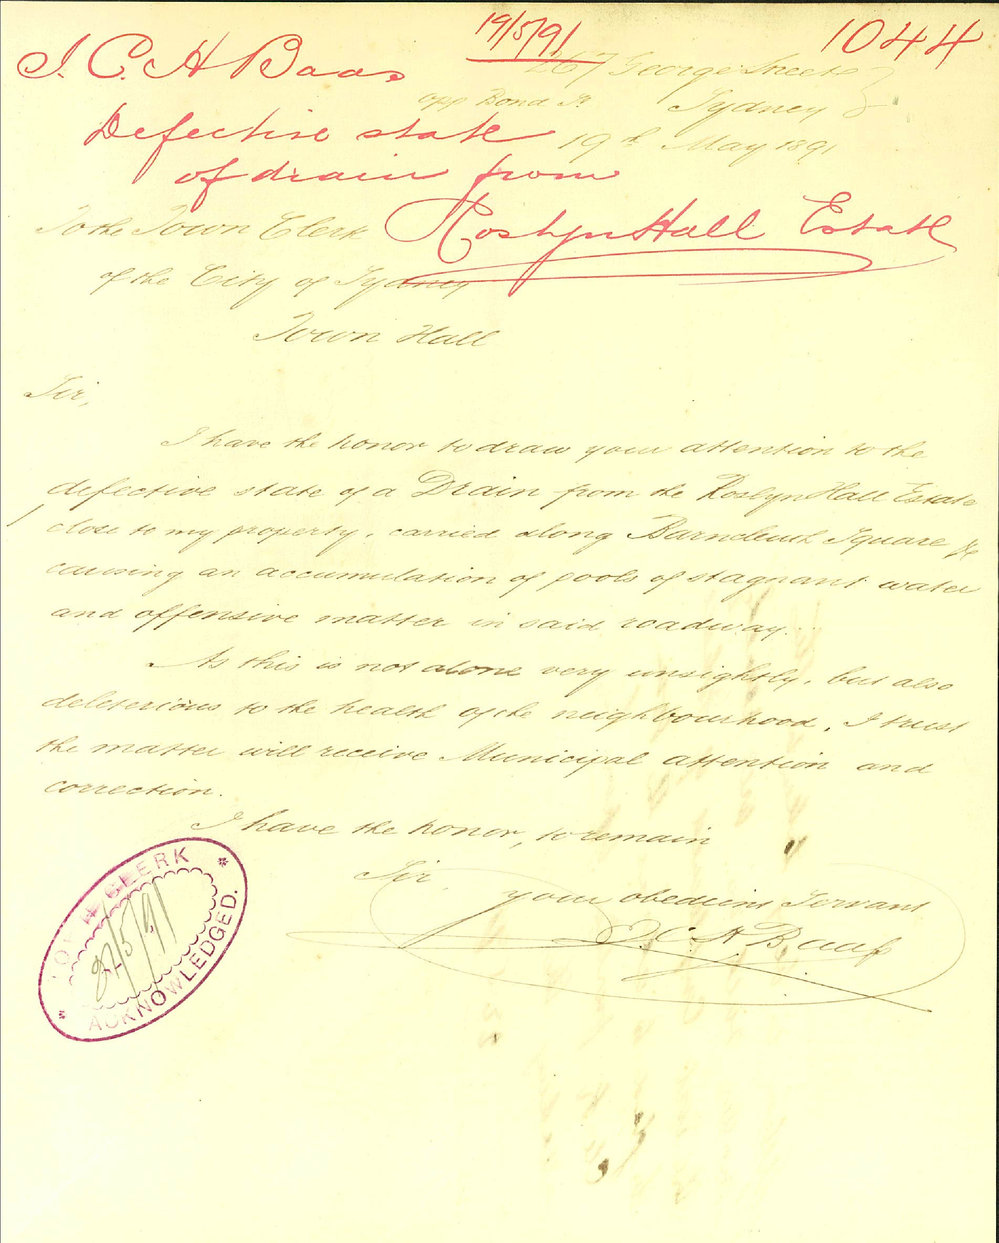 19/5/91
1044
J. C. A Baas
267 George Street
opp Bond St. Sydney
Defective state
19th May 1891
of drain from
Roslyn Hall Estate
To the Town Clerk
of the City of Sydney
Town Hall
Sir,
I have the honor to draw your attention to the
defective state of a Drain from the Roslyn Hall Estate
close to my property, carried along Barncleuth Square &c
causing an accumulation of pools of stagnant water
and offensive matter in said roadway.
As this is not alone very unsightly, but also
deleterious to the health of the neighbourhood, I trust
the matter will receive Municipal attention and
correction.
I have the honor, to remain
Sir,
your obedient Servant
J. C. A Baass
TOWN CLERK
22/5/91
ACKNOWLEDGED.